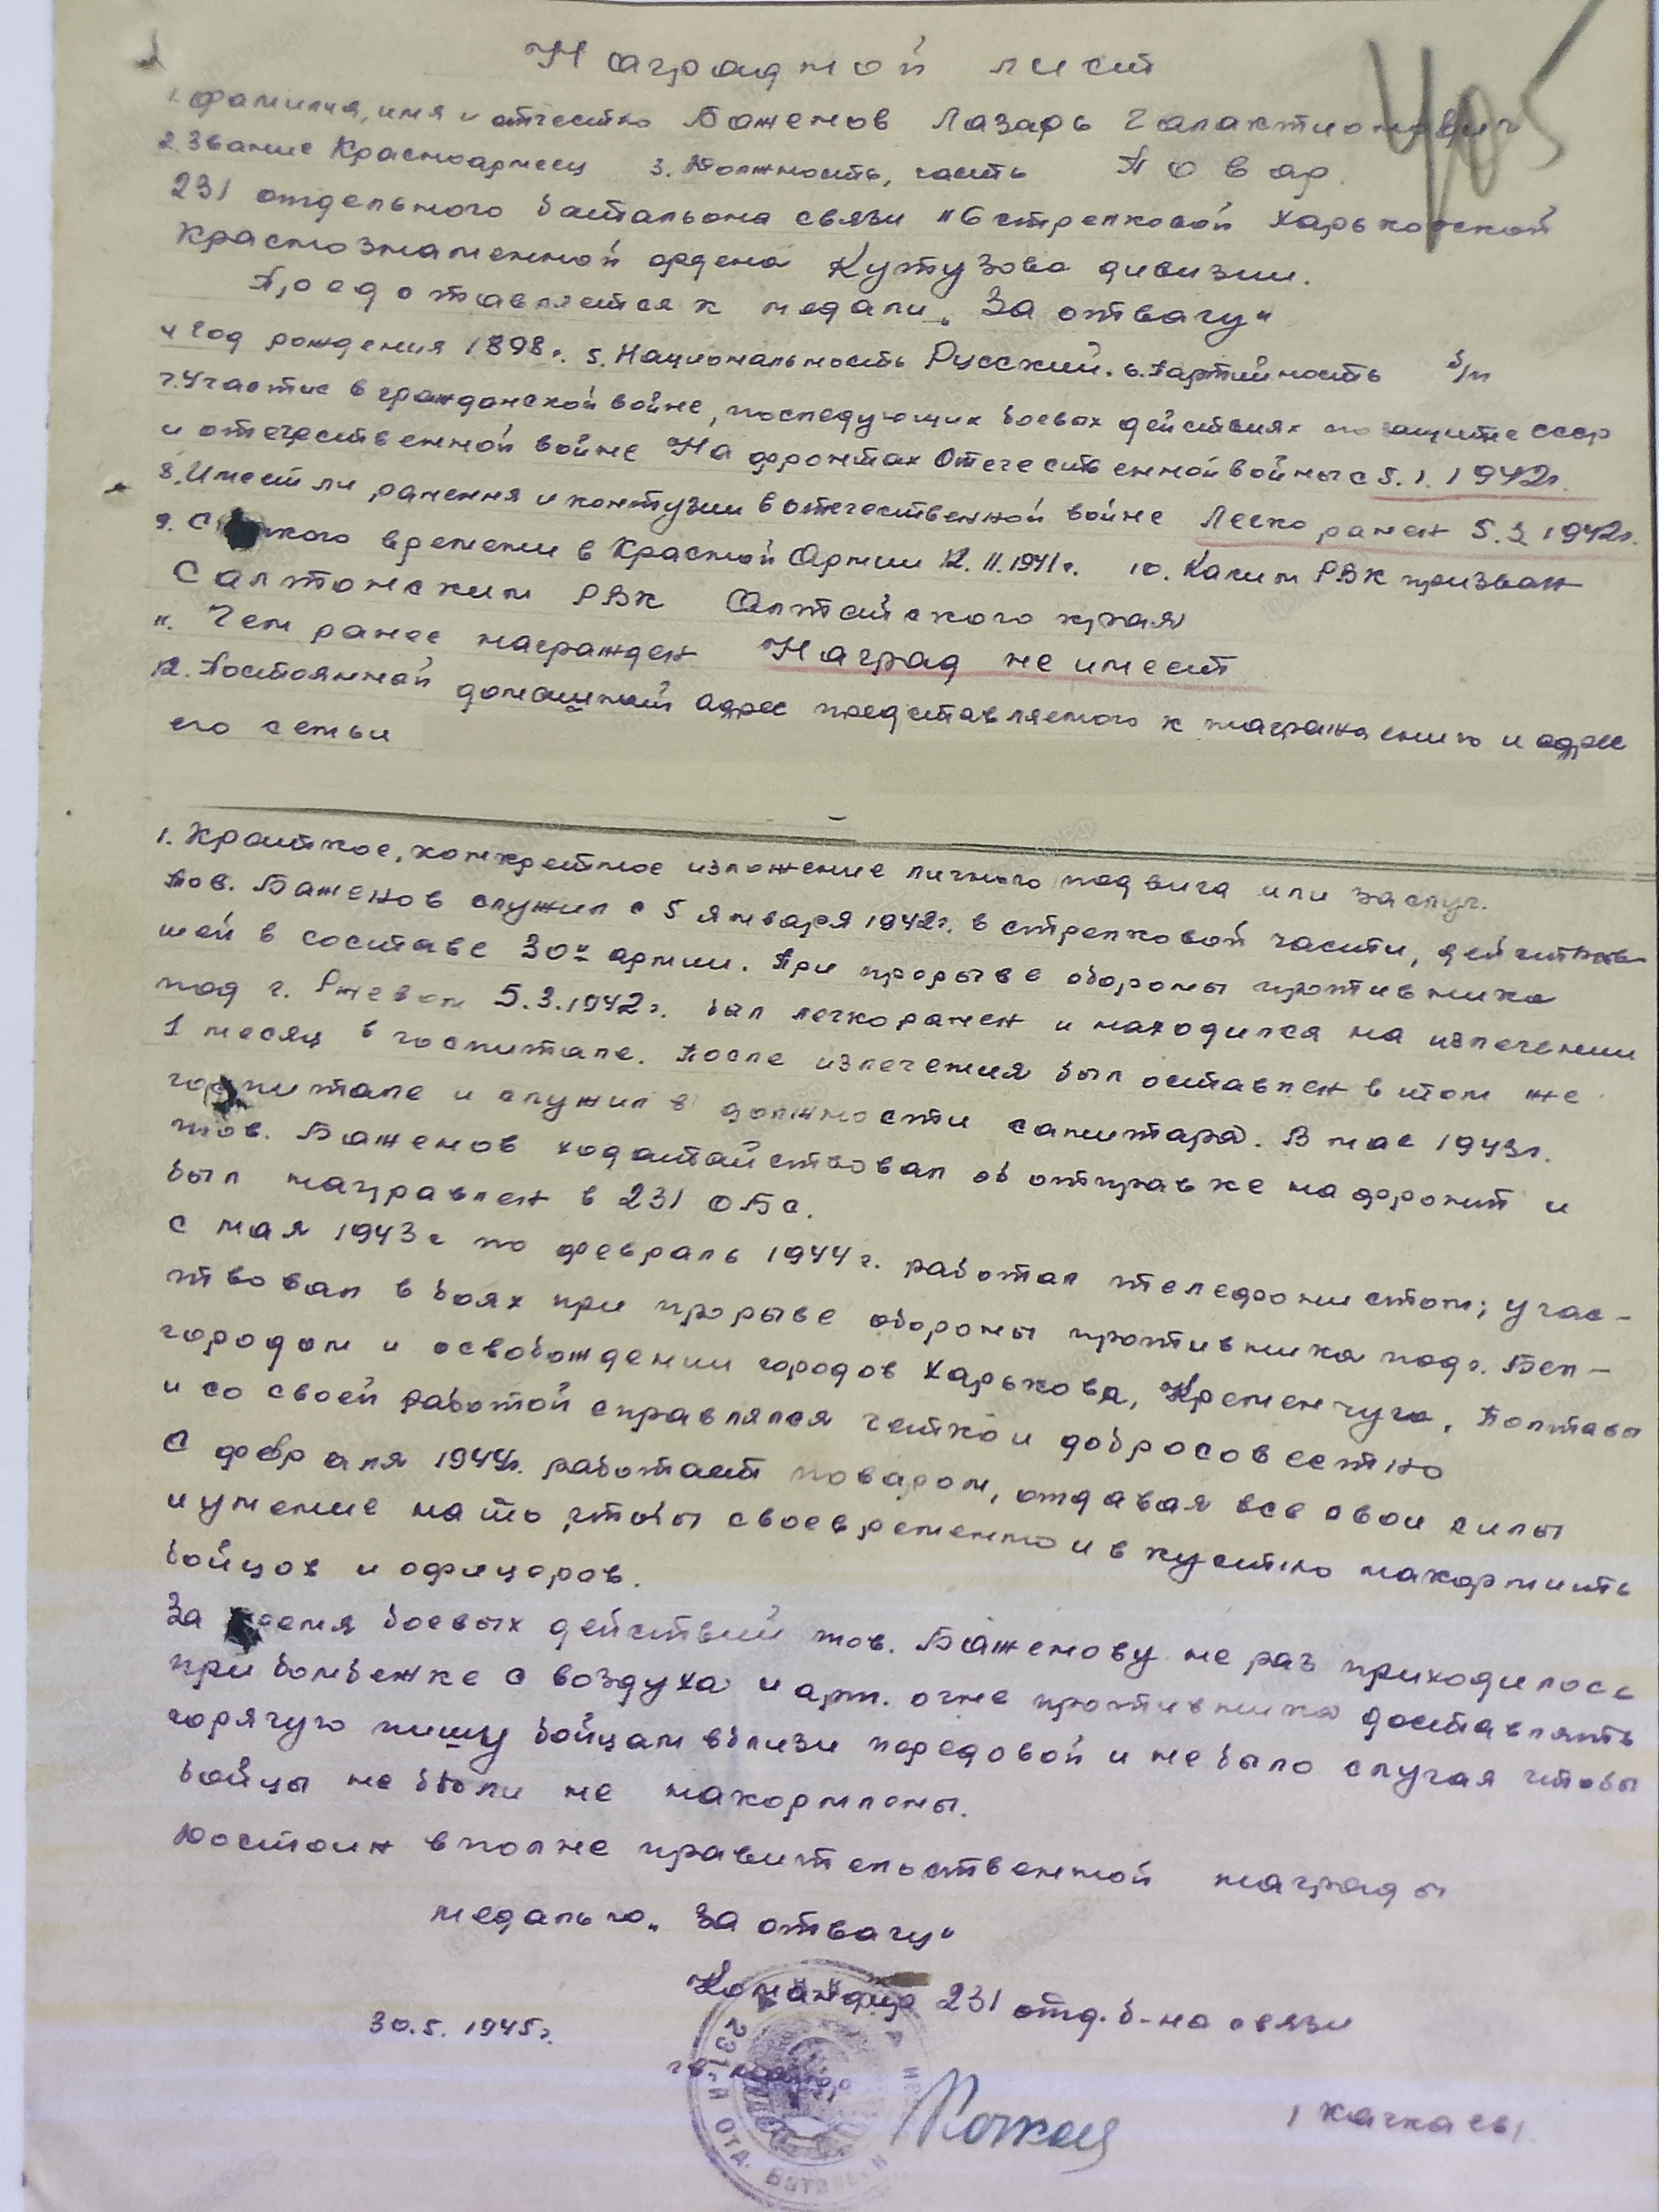 Наградной лист
1. Фамилия, имя и отчество Баженов Лазарь Галактионович
2. Звание Красноармеец 3. Должность, часть Повар.
231 отдельного батальона связи 116 стрелковой Харьковской
Краснознаменной ордена Кутузова дивизии.
Предоставляется к медали „За отвагу"
4 Год рождения 1898г. 5. Национальность Русский. 6. Партийность б/п
7. Участие в гражданской войне, последующих боевых действиях по защите СССР
и отечественной войне На фронтах Отечественной войны с 5.1.1942г.
8. Имеет ли ранения и контузии в отечественной войне Легко ранен 5.3.1942г.
9. С какого времени в Красной Армии 12.11.1941г. 10. Каким РВК призван
Салтонским РВК Алтайского края
11. Чем ранее награжден Наград не имеет
12. Постоянной домашний адрес представляемого к награждению и адрес
его семьи
1. Краткое, конкретное изложение личного подвига или заслуг.
Тов. Баженов служил с 5 января 1942г. в стрелковой части, действовав-
шей в составе 30й армии. При прорыве обороны противника
под г. Ржевом 5.3.1942г. был легко ранен и находился на излечении
1 месяц в госпитале. После излечения был оставлен в этом же
госпитале и служил в должности санитара. В мае 1943г.
тов. Баженов ходатайствовал об отправке на фронт и
был направлен в 231 ОБС.
С мая 1943г по февраль 1944г. работал телефонистом; учас-
твовал в боях при прорыве обороны противника под г. Бел-
городом и освобождении городов Харькова, Кременчуга, Полтавы
и со своей работой справлялся четко и добросовестно
С февраля 1944г. работает поваром, отдавая все свои силы
и умение на то, чтобы своевременно и вкусно накормить
бойцов и офицеров.
За время боевых действий тов. Баженову не раз приходилось
при бомбежке с воздуха и арт. огне противника доставлять
горячую пищу бойцам вблизи передовой и не было случая чтобы
бойцы не были не накормлены.
Достоин вполне правительственной награды
медалью „За отвагу"
Командир 231 отд. б-на связи
30.5.1945г.
гв.
/Качкаев/
405
231-й ОТД. БАТАЛЬОН